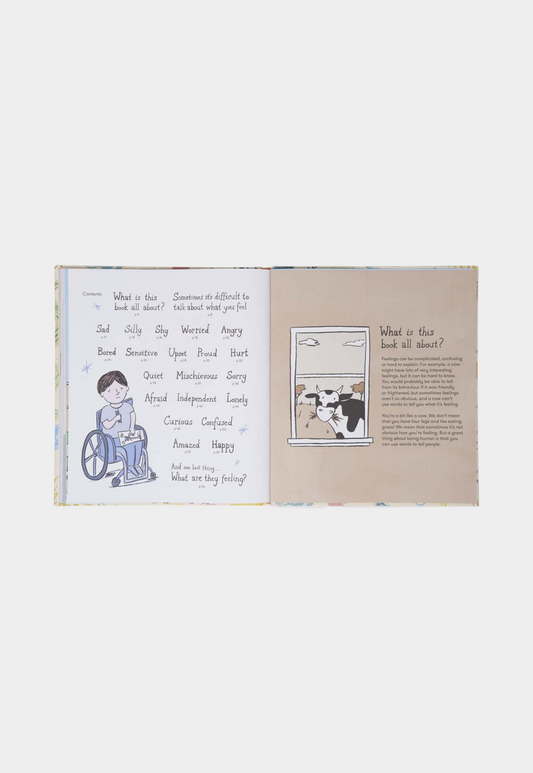 Contents
What is this
book all about?
Sometimes it's difficult to
talk about what you feel
Sad Silly Shy Worried Angry
Bored Sensitive Upset Proud Hurt
Quiet Mischievous Sorry
Afraid Independent Lonely
Curious Confused
Amazed Happy
And one last thing...
What are they feeling?
What is this
book all about?
Feelings can be complicated, confusing
or hard to explain. For example, a cow
might have lots of very interesting
feelings, but it can be hard to know.
You would probably be able to tell
from its behaviour if it was friendly
or frightened, but sometimes feelings
aren't so obvious, and a cow can't
use words to tell you what it's feeling.
You're a bit like a cow. We don't mean
that you have four legs and like eating
grass! We mean that sometimes it's not
obvious how you're feeling. But a great
thing about being human is that you
can use words to tell people.